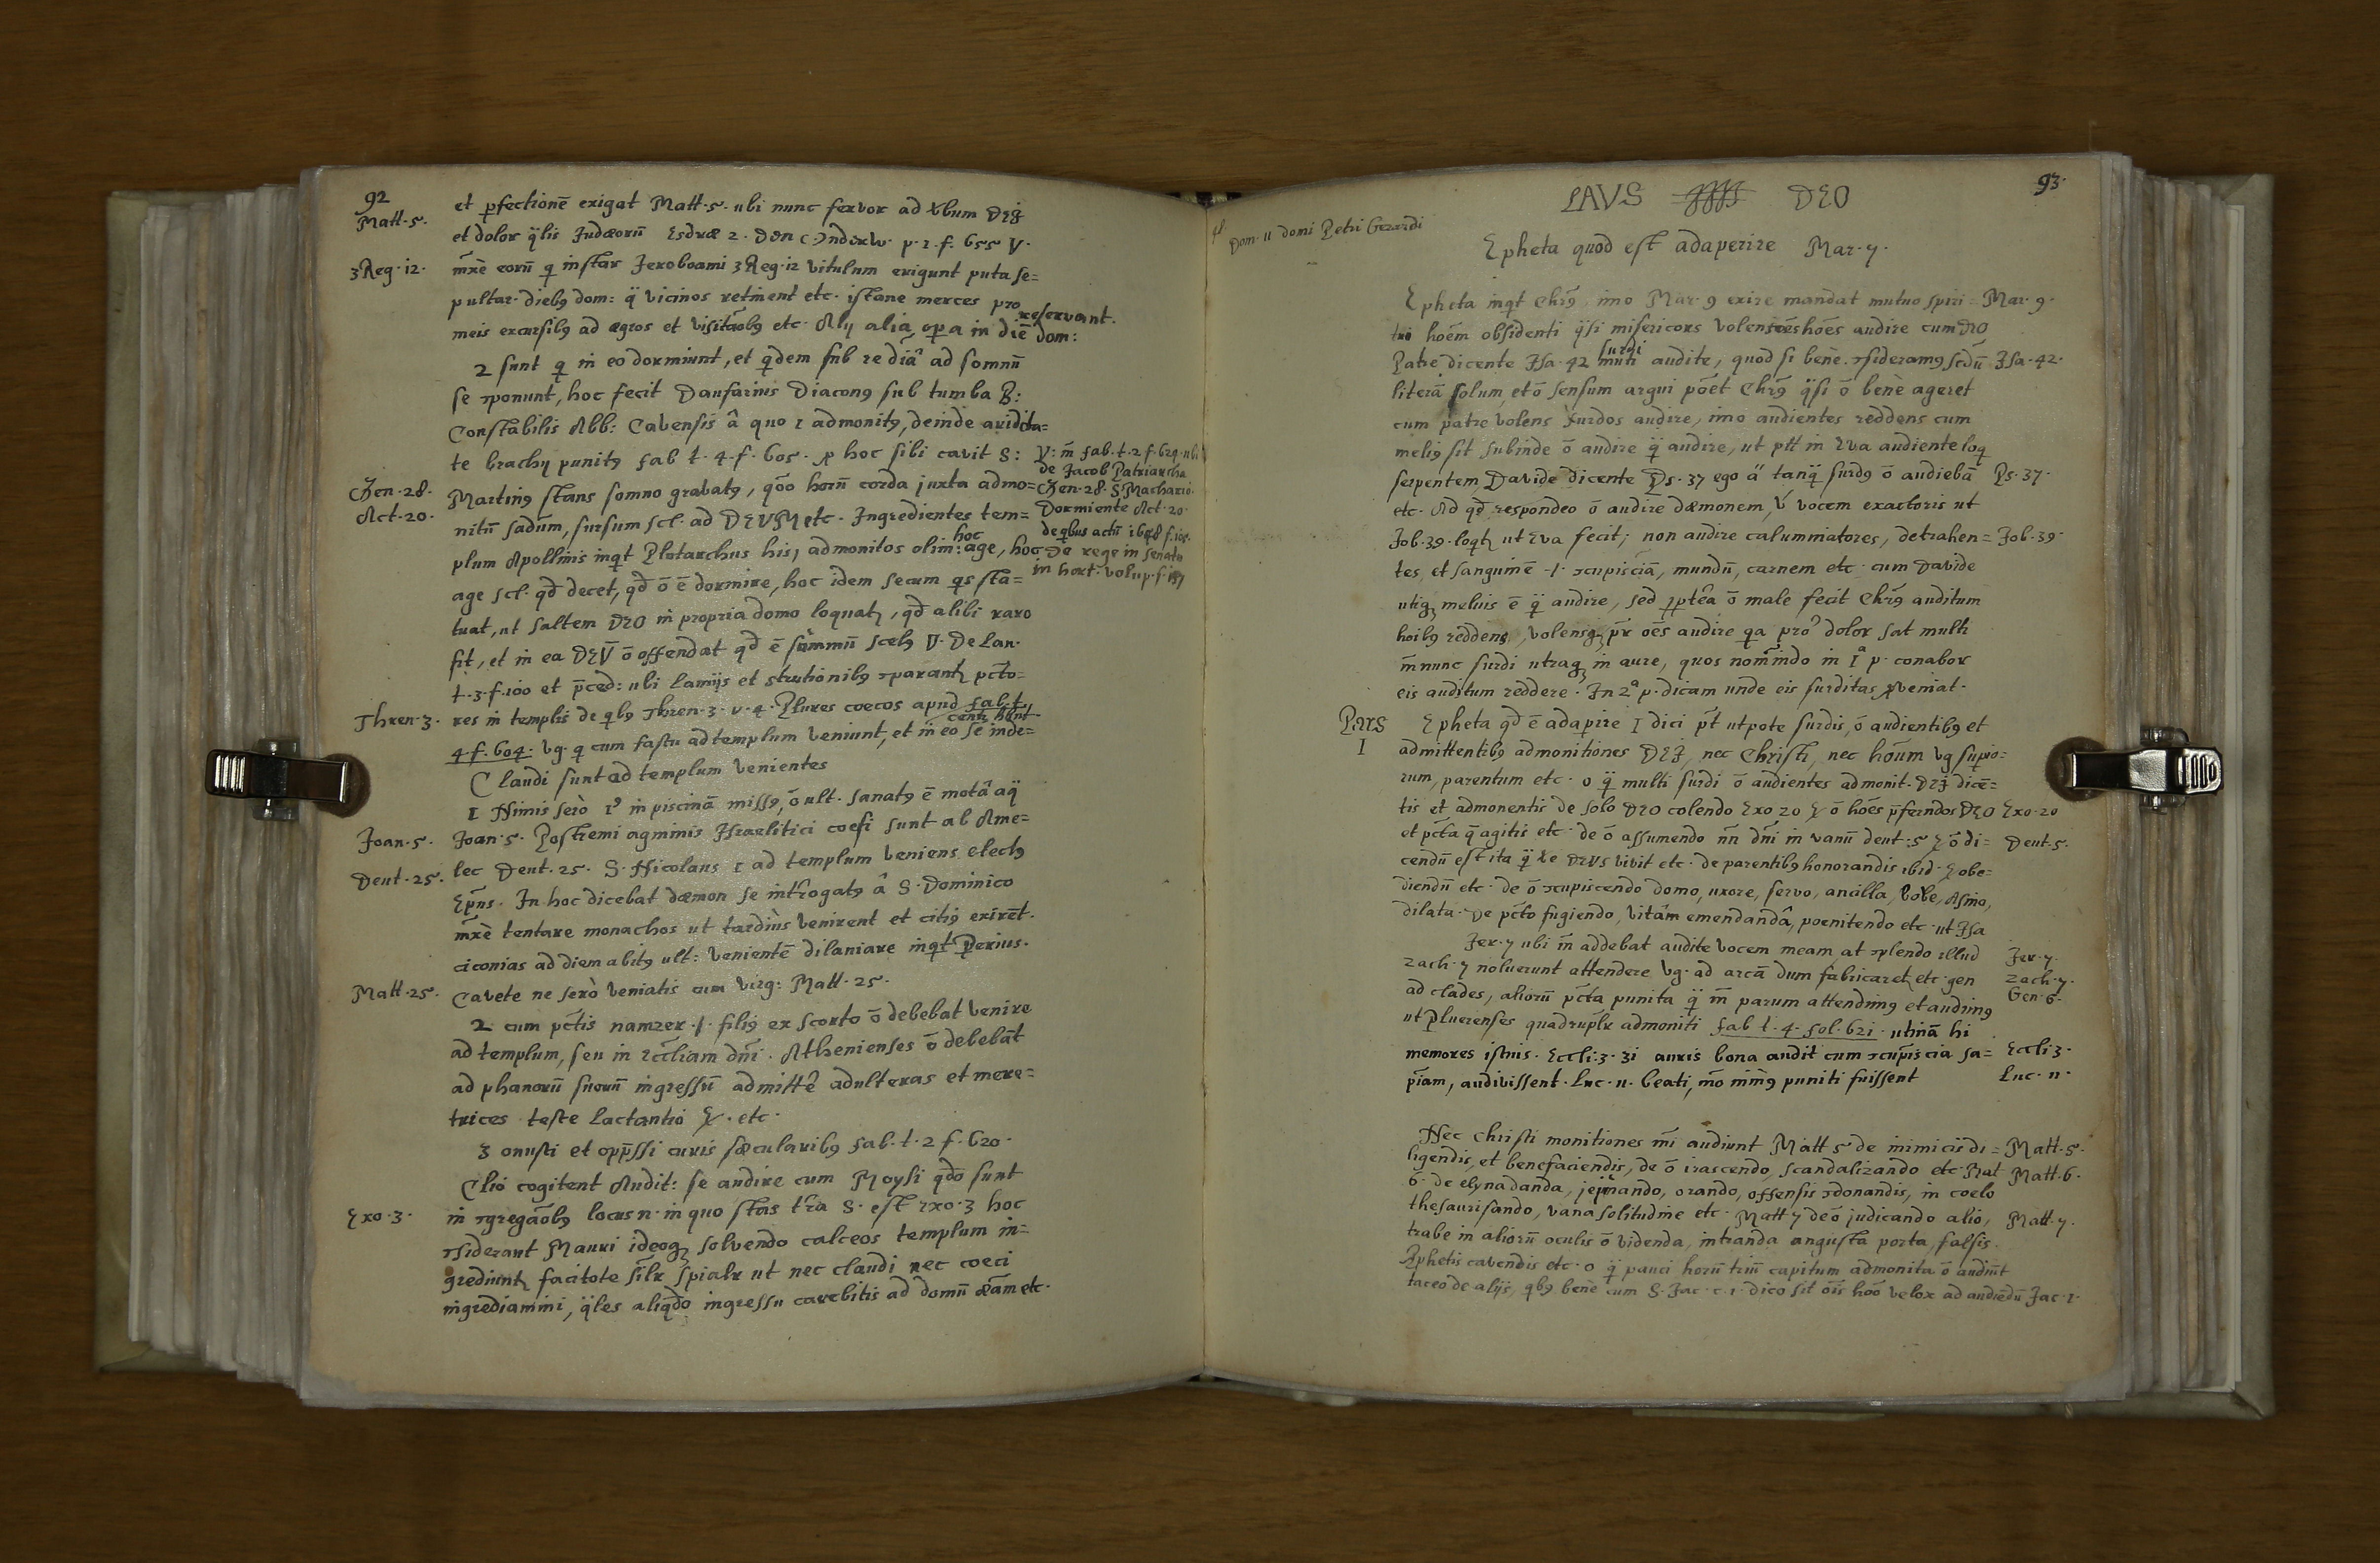 92
et pfectionē exigat Matt·5· ubi nunc fervor ad vbum DEJ
Matt·5·
et dolor q̈lis Judæorū Esdræ 2· Den C· Onderw· p·2·f·655 V·
3 Reg·12·
m̄xè eorū q instar Jeroboami 3 Reg·12 vitulum erigunt puta se=
pultar· diebꝰ dom: q̈ vicinos retinent etc· istane merces pro
meis excursibꝰ ad ægros et visitāōbꝰ etc· Alij alia opa in diē dom:
reservant·
2 sunt q in eo dormiunt, et qdem sub re diā ad somnū
se ꝯponunt, hoc fecit Daufarius Diaconꝰ sub tumba B:
Constabilis Abb: Cavensis â quo 1 admonitꝰ, deinde aridita=
te brachij punitꝰ fab t·4·f·605· p hoc sibi cavit S:
V: m̄ fab·t·2 f·629·ubi
de Jacob Patriarcha
Gen·28·
Martinꝰ stans somno gravatꝰ, qōo horū corda juxta admo=
Gen·28· S· Machario·
Act·20·
nitū sadūm, sursum scl· ad DEVM etc· Ingredientes tem=
Dormiente Act·20·
plum Apollinis inqt Plutarchus his, admonitos olim: hoc age, hoc
de qbus actū 1698 f·105·
De rege in senatu
age scl· qd̄ decet, qd̄ ō ē dormire, hoc idem secum qs sta=
in hort: volup·f·157
tuat, ut saltem DEO in propria domo loquatꝛ, qd̄ alibi raro
fit, et in ea DEV̄ ō offendat qd̄ ē sum̄mū scelꝰ V· De Lan·
t·3·f·100 et p̄ced: ubi lamijs et strutionibꝰ ꝯparantꝛ pct̄o=
Thren·3·
res in templis de qbꝰ Thren·3· v·4· Plures coecos apud fab·t·
4·f·604· vg· q cum fastu ad templum veniunt, et in eo se inde=
centꝛ hbnt·
Claudi sunt ad templum venientes
1 Nimis serò 1ꝰ in piscinā missꝰ, ō ult· sanatꝰ ē motâ aq̈
Joan·5·
Joan·5· Postremi agminis Israelitici coesi sunt ab Ame=
Deut·25·
lec Deut·25· S· Nicolaus 1 ad templum veniens electꝰ
Ep̄us· In hoc dicebat dæmon se introgatꝰ â S· Dominico
m̄xè tentare monachos ut tardiùs venirent et citiꝰ exirēt·
ciconias ad diem abitꝰ ult: venientē dilaniare inqt Pierius·
Matt·25·
Cavete ne serò veniatis cum virg: Matt·25·
2 cum pct̄is namzer ·l· filiꝰ ex scorto ō debebat venire
ad templum, seu in Eccl̄iam dn̄i· Athenienses ō debebāt
ad phanorū suorū ingressū admittē adulteras et mere=
trices teste Lactantio &· etc·
3 onusti et opp̄ssi curis sæcularibꝰ fab·t·2 f·620·
Clió cogitent Audit: se audire cum Moysi qdō sunt
Exo·3·
in ꝯgregāōbꝰ locus n· in quo stas tr̄a S· est Exo·3 hoc
ꝯsiderant Mauri ideoqꝫ solvendo calceos templum in=
grediuntꝛ facitote sil̄r spialr ut nec claudi nec coeci
ingrediamini, q̈les aliqdō ingressu carebitis ad domū æām etc·
93·
LAVS DEO
Dom· 11 domi Petri Gerardi
Epheta quod est adaperire Mar·7·
Epheta inqt Chrūs, imo Mar·9 exire mandat mutuo spiri=
Mar·9·
tui hoēm obsidenti q̈si misericors volens oēs hoēs audire cum DEO
Patre dicente Isa·42 surdi muti audite, quod si benè ꝯsideramꝰ scdū
Isa·42·
literā solum, et ō sensum argui pōet Chrūs q̈si ō benè ageret
cum patre volens surdos audire, imo audientes reddens cum
meliꝰ sit subinde ō audire q̈ audire, ut ptt in Eva audiente loq
serpentem, Davide dicente Ps·37 ego ā tanq̈ surdꝰ ō audiebā
Ps·37·
etc· Ad qd̄ respondeo ō audire dæmonem, V̀ vocem exactoris ut
Job·39· loqtꝛ ut Eva fecit; non audire calumniatores, detrahen=
Job·39·
tes, et sanguinē ·l· ꝯcupisciā, mundū, carnem etc· cum Davide
utiqꝫ melius ē q̈ audire, sed pptêa ō male fecit Chrūs auditum
hoibꝰ reddens, volensqꝫ pr̄ oēs audire qa pro dolor sat multi
m̄ nunc surdi utraqꝫ in aure, quos nominādo in Iª p· conabor
eis auditum reddere· In 2ª p· dicam unde eis surditas pveniat·
Pars
I
Epheta qd̄ ē adapire I dici pt̄ utpote surdis, ō audientibꝰ et
admittentibꝰ admonitiones DEJ, nec Christi, nec hoūm vg supio=
rum, parentum etc· o q̈ multi surdi ō audientes admonit· DEJ dicē=
tis et admonentis de solo DEO colendo Exo 20 & ō hoēs p̄ferndos DEO
Exo·20
et pct̄a q̄ agitis etc· de ō assumendo nn̄ dn̄i in vanū deut:5 & ō di=
Deut·5·
cendū est ita q̈ re DEVS vivit etc· de parentibꝰ honorandis ibid· & obe=
diendū etc· de ō ꝯcupiscendo domo, uxore, servo, ancilla, bove, Asino,
dilata· De pct̄o fugiendo, vitâm emendandâ, poenitendo etc· ut Isa
Jer·7 ubi m̄ addebat audite vocem meam, at ꝯplendo illud
Jer·7·
Zach·7 noluerunt attendere vg· ad arcā dum fabricaretꝛ etc· gen
Zach·7·
ad clades, aliorū pct̄a punita q̈ m̄ parum attendimꝰ et audimꝰ
Gen·6·
ut Pluerenses quadruplr admoniti fab t·4· fol·621· utinā hi
memores istius· Eccli·3·31 auris bona audit cum ꝯcupiscia sa=
Eccli 3·
piam, audivissent· Luc·11· beati, m̄o minꝰ puniti fuissent
Luc·11·
Nec Christi monitiones mi audiunt Matt 5 de inimicis di=
Matt·5·
ligendis, et benefaciendis, de ō irascendo, scandalizando etc· Mat
Matt·6·
6· de elynadanda, jejunando, orando, offensis ꝯdonandis, in coelo
thesaurisando, vana solitudine etc· Matt 7 de ō judicando alio,
Matt·7·
trabe in aliorū oculis ō videnda, intranda angusta porta, falsis
Pphetis cavendis etc· o q̈ pauci horū triū capitum admonita ō audiūt
taceo de alijs, qbꝰ benè cum S· Jac·c·1· dico sit oīs hoō velox ad audiēdū
Jac·1·